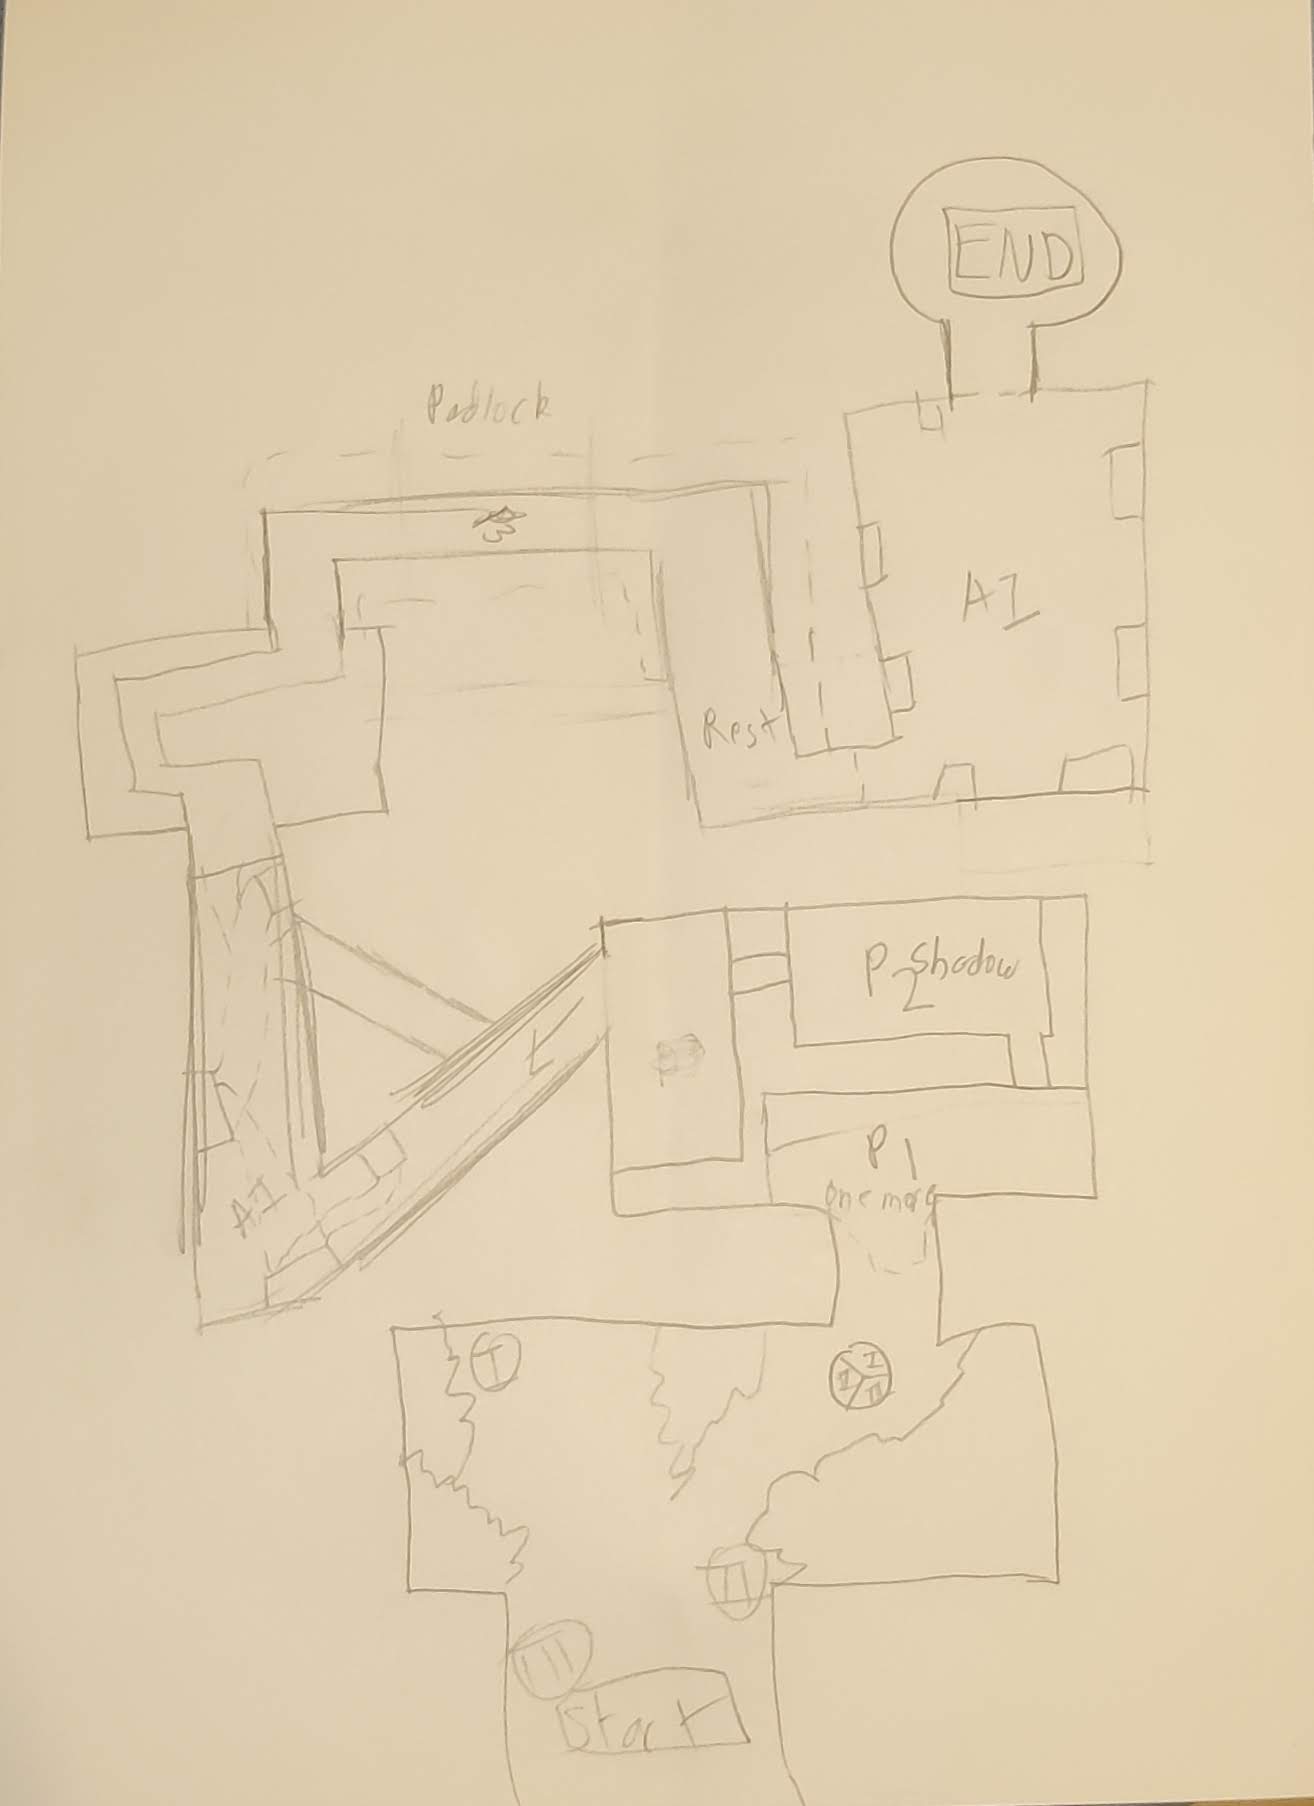 END
Padlock
AI
Rest
P2 Shadow
t
P1
one more
AI
I
I
II
III
II
III
Start